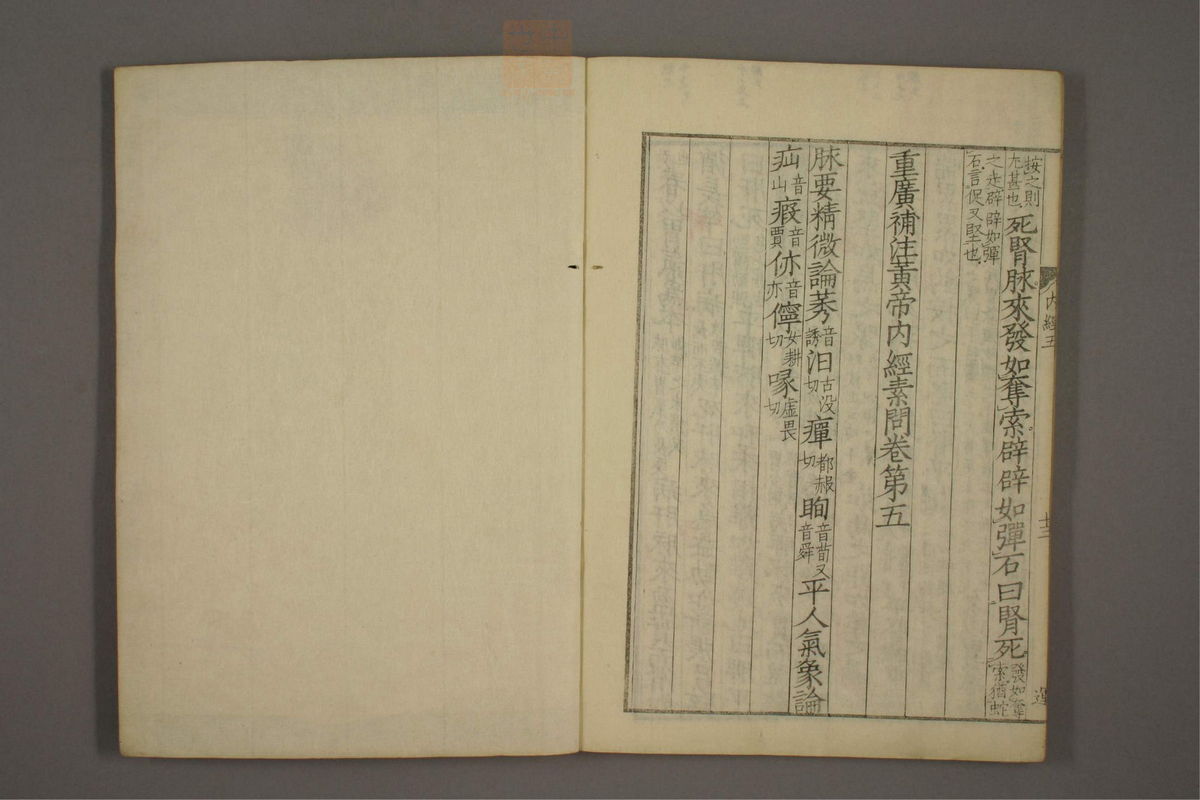 按之則
尤甚也
死腎脉來發如奪索辟辟如彈石曰腎死
發如奪
索猶蛇
之走辟辟如彈
石言促又堅也
重廣補注黃帝内經素問卷第五
脉要精微論莠
音
誘
汩
古没
切
癉
都赧
切
眴
音荀又
音舜
平人氣象論
疝
音
山
瘕
音
賈
㑊
音
亦
儜
女耕
切
喙
虛畏
切
内經五
十三